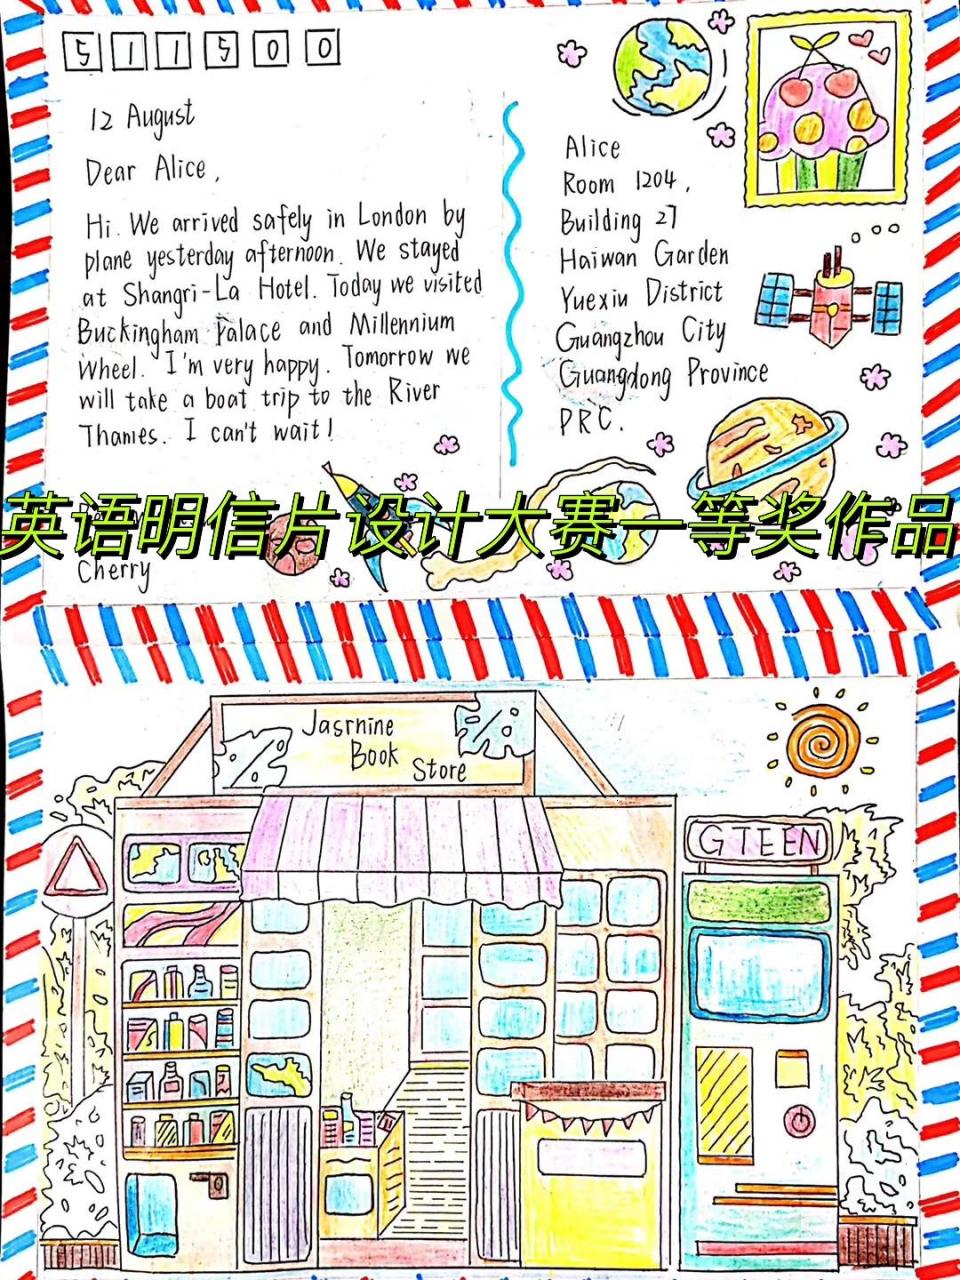 511500
12 August
Dear Alice,
Hi. We arrived safely in London by
plane yesterday afternoon. We stayed
at Shangri-La Hotel. Today we visited
Buckingham Palace and Millennium
Wheel. I'm very happy. Tomorrow we
will take a boat trip to the River
Thames. I can't wait!
Cherry
Alice
Room 1204,
Building 27
Haiwan Garden
Yuexiu District
Guangzhou City
Guangdong Province
PRC.
英语明信片设计大赛一等奖作品
Jasrnine
Book
Store
GTEEN